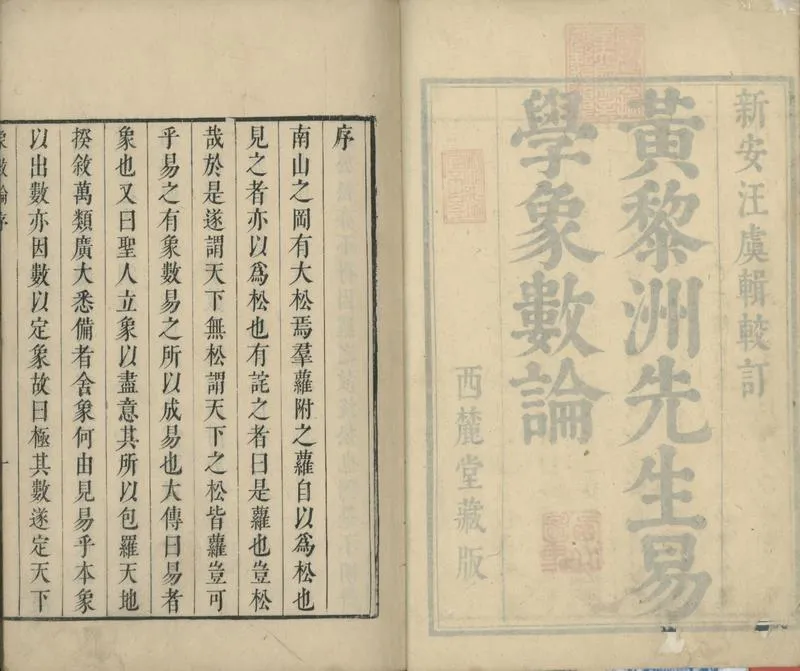 新安汪虞輯較訂
黃黎洲先生易
學象數論
西麓堂藏版
序
南山之岡有大松焉羣蘿附之蘿自以爲松也
見之者亦以爲松也有詫之者曰是蘿也豈松
哉於是遂謂天下無松謂天下之松皆蘿豈可
乎易之有象數易之所以成易也大傳曰易者
象也又曰聖人立象以盡意其所以包羅天地
揆敘萬類廣大悉備者舍象何由見易乎本象
以出數亦因數以定象故曰極其數遂定天下
象數論序
一